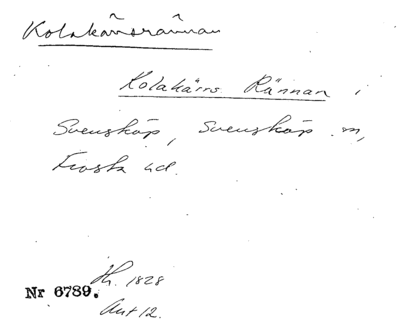 Kolakärrsrännan
Kolakärrs Rännan i
Svensköp, Svensköp sn,
Frosta hd.
Hh. 1828
Nr 6789.
Akt 12.